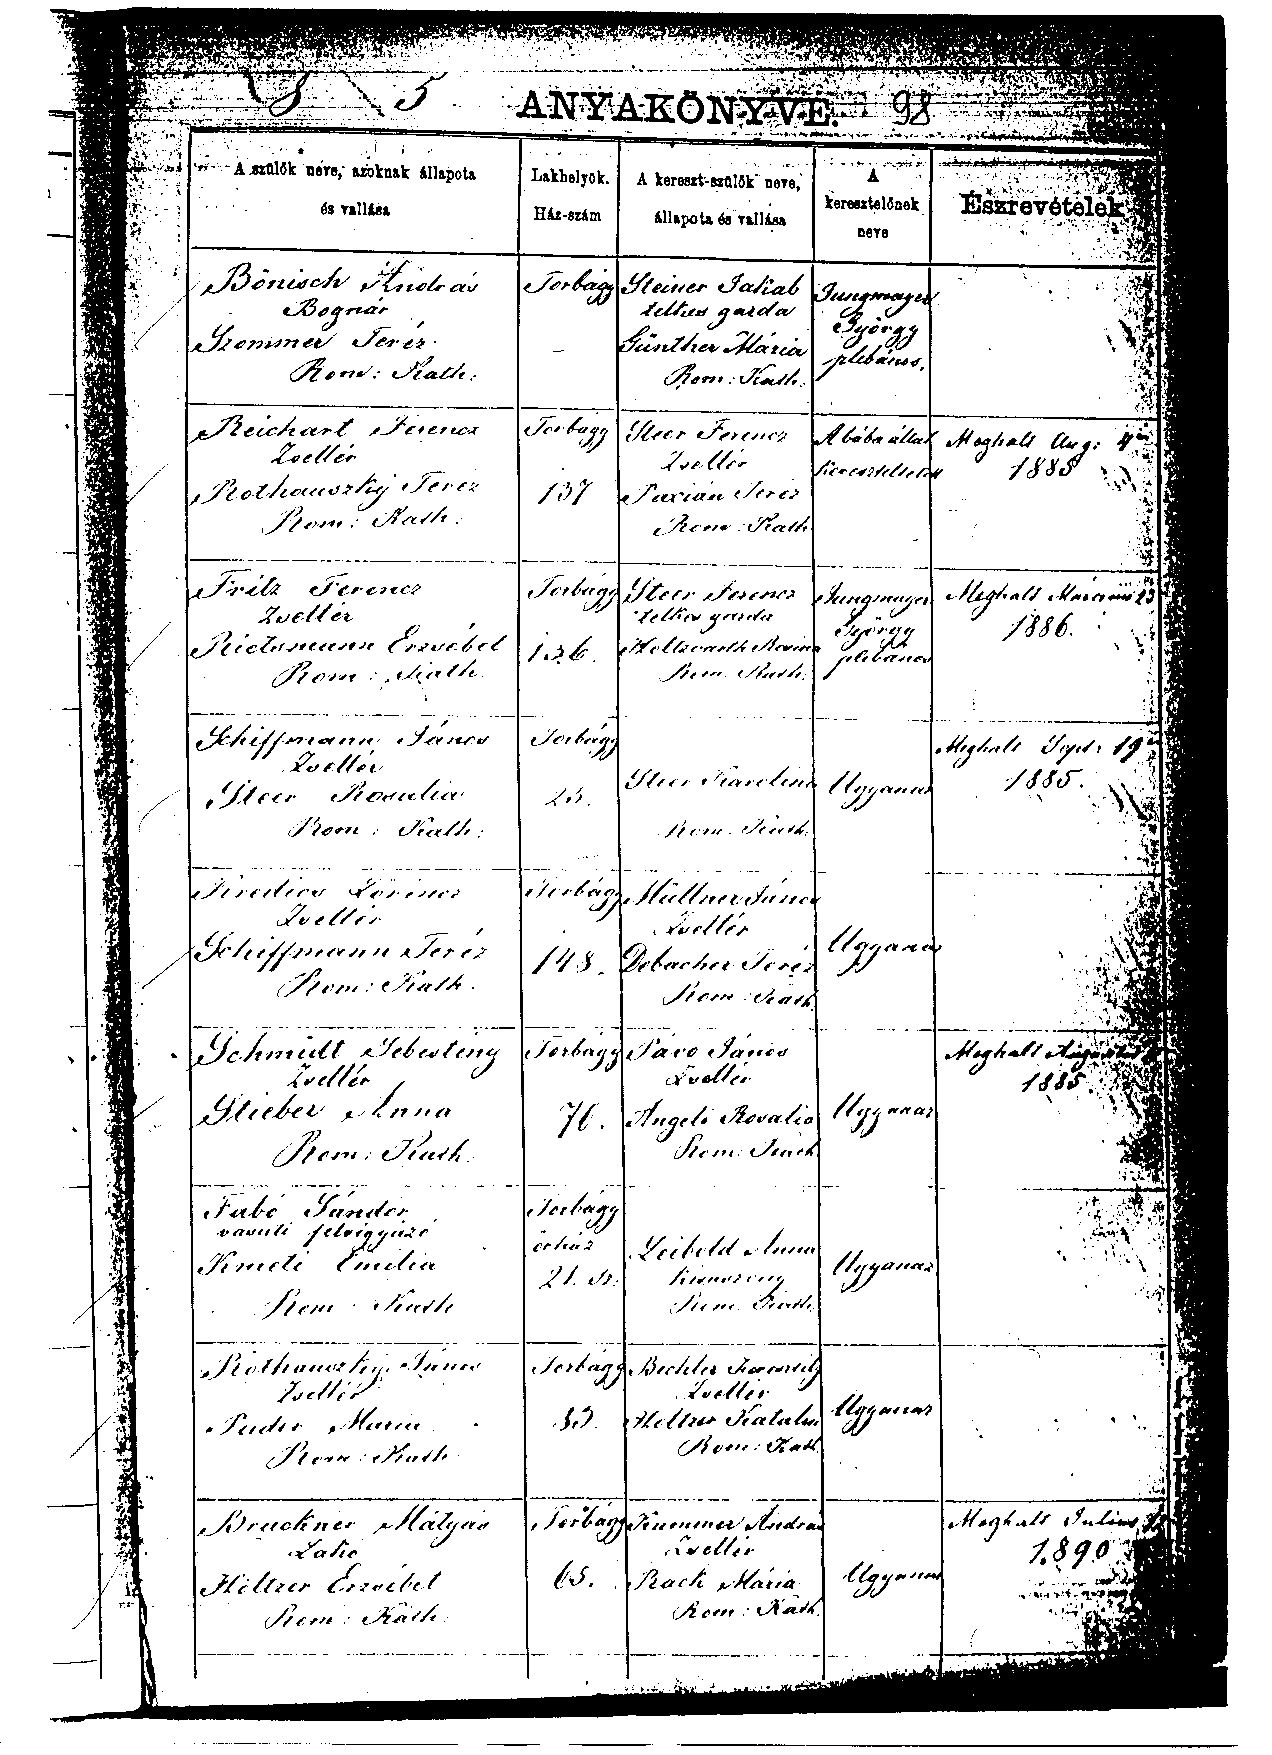 5 ANYAKÖNYVE. 98
A szülők neve, azoknak állapota
és vallása
Lakhelyök.
Ház-szám
A kereszt-szülők neve,
állapota és vallása
A
keresztelőnek
neve
Észrevételek
Bönisch András
Bognár
Szommer Teréz
Rom: Kath:
Torbágy
–
Steiner Jakab
telkes gazda
Günther Mária
Rom: Kath:
Jungmayer
György
plebános.
Reichart Ferencz
Zsellér
Rothauszky Teréz
Rom: Kath:
Torbágy
137
Steer Ferencz
Zsellér
Paxián Teréz
Rom: Kath
A bába által
kereszteltetett
Meghalt Aug: 4
1885
Fritz Ferencz
Zsellér
Erzsébet
Rom: Kath.
Torbágy
136.
Steer Ferencz
telkes gazda
Rosina
Rom. Kath.
Jungmayer
György
plebános
Meghalt Március 23
1886.
Schiffmann János
Zsellér
Steer Rosalia
Rom: Kath:
Torbágy
Steer Karolina
Rom. Kath.
Ugyanaz
Meghalt Sept: 19
1885.
Lőrincz
Zsellér
Schiffmann Teréz
Rom: Kath.
Torbágy
148.
Müllner János
Zsellér
Debacher Teréz
Rom: Kath.
Ugyanaz
Schmidt Sebestény
Zsellér
Stieber Anna
Rom: Kath.
Torbágy
76.
Pavo János
Zsellér
Angeli Rosalia
Rom: Kath.
Ugyanaz
Meghalt Augusztus
1885.
Fabó Sándor
vasuti felvigyázó
Kmeti Emilia
Rom Kath
Torbágy
őrház
21. sz.
Leibold Anna
Rom. Kath.
Ugyanaz
Rothauszky János
Zsellér
Puder Maria
Rom: Kath.
Torbágy
Bechler
Zsellér
Höltzer Katalin
Rom: Kath.
Ugyanaz
Bruckner Mátyás
Lakó
Höltzer Erzsébet
Rom: Kath.
Torbágy
65.
Kummer András
Zsellér
Rack Mária
Rom: Kath.
Ugyanaz
Meghalt Julius
1890